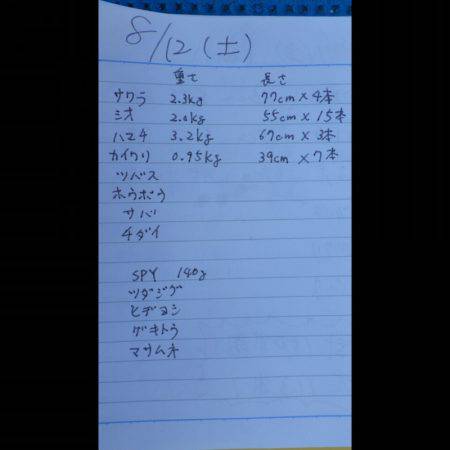 8/12(土)
重さ 長さ
サワラ 2.3kg 77cm×4本
ミオ 2.0kg 55cm×15本
ハマチ 3.2kg 67cm×3本
カイワリ 0.95kg 39cm×7本
ツバス
ホウボウ
サバ
チダイ
SPY 140g
ツダジグ
ヒデヨシ
ゲキトウ
マサムネ